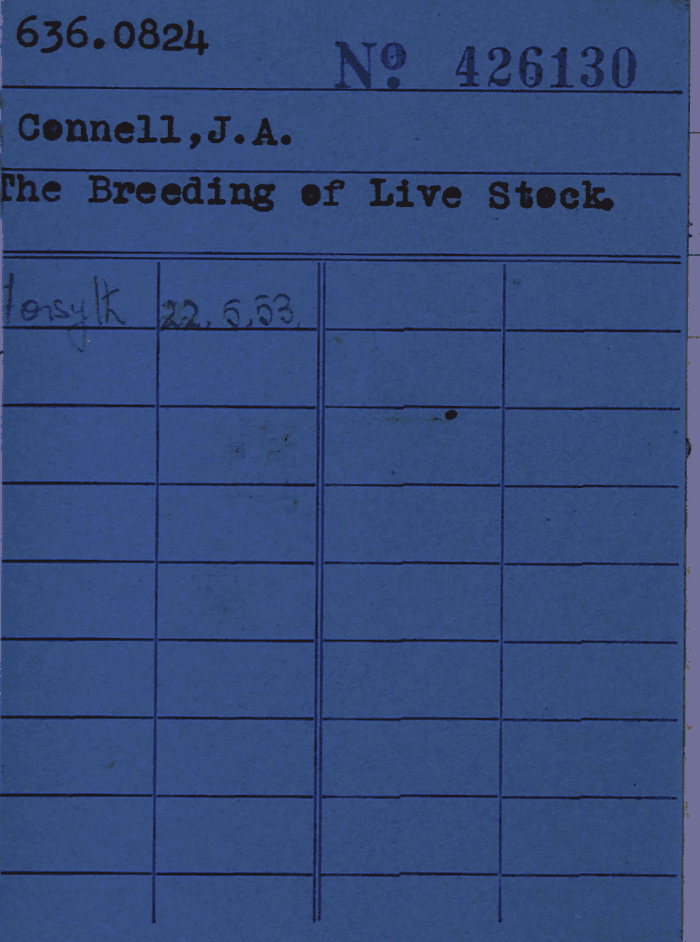 636.0824
Nº 426130
Connell,J.A.
The Breeding of Live Stock.
Forsyth 22.5.53.